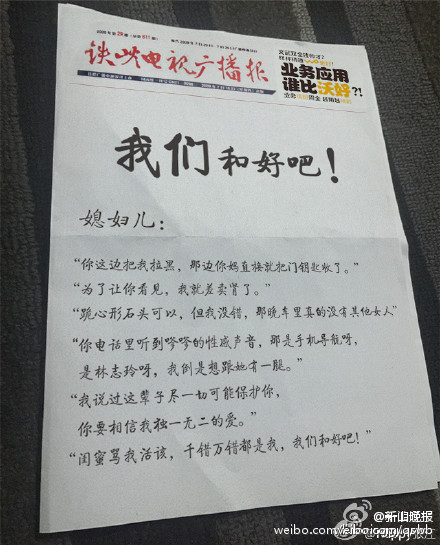 铁岭电视广播报
业务应用
谁比沃好?!
我们和好吧!
媳妇儿:
“你这边把我拉黑,那边你妈直接就把门钥匙收了。”
“为了让你看见,我就差卖肾了。”
“跪心形石头可以,但我没错,那晚车里真的没有其他女人”
“你电话里听到嗲嗲的性感声音,那是手机导航呀,
是林志玲呀,我倒是想跟她有一腿。”
“我说过这辈子尽一切可能保护你,
你要相信我独一无二的爱。”
“闺蜜骂我活该,千错万错都是我,我们和好吧!”
@新闻晚报